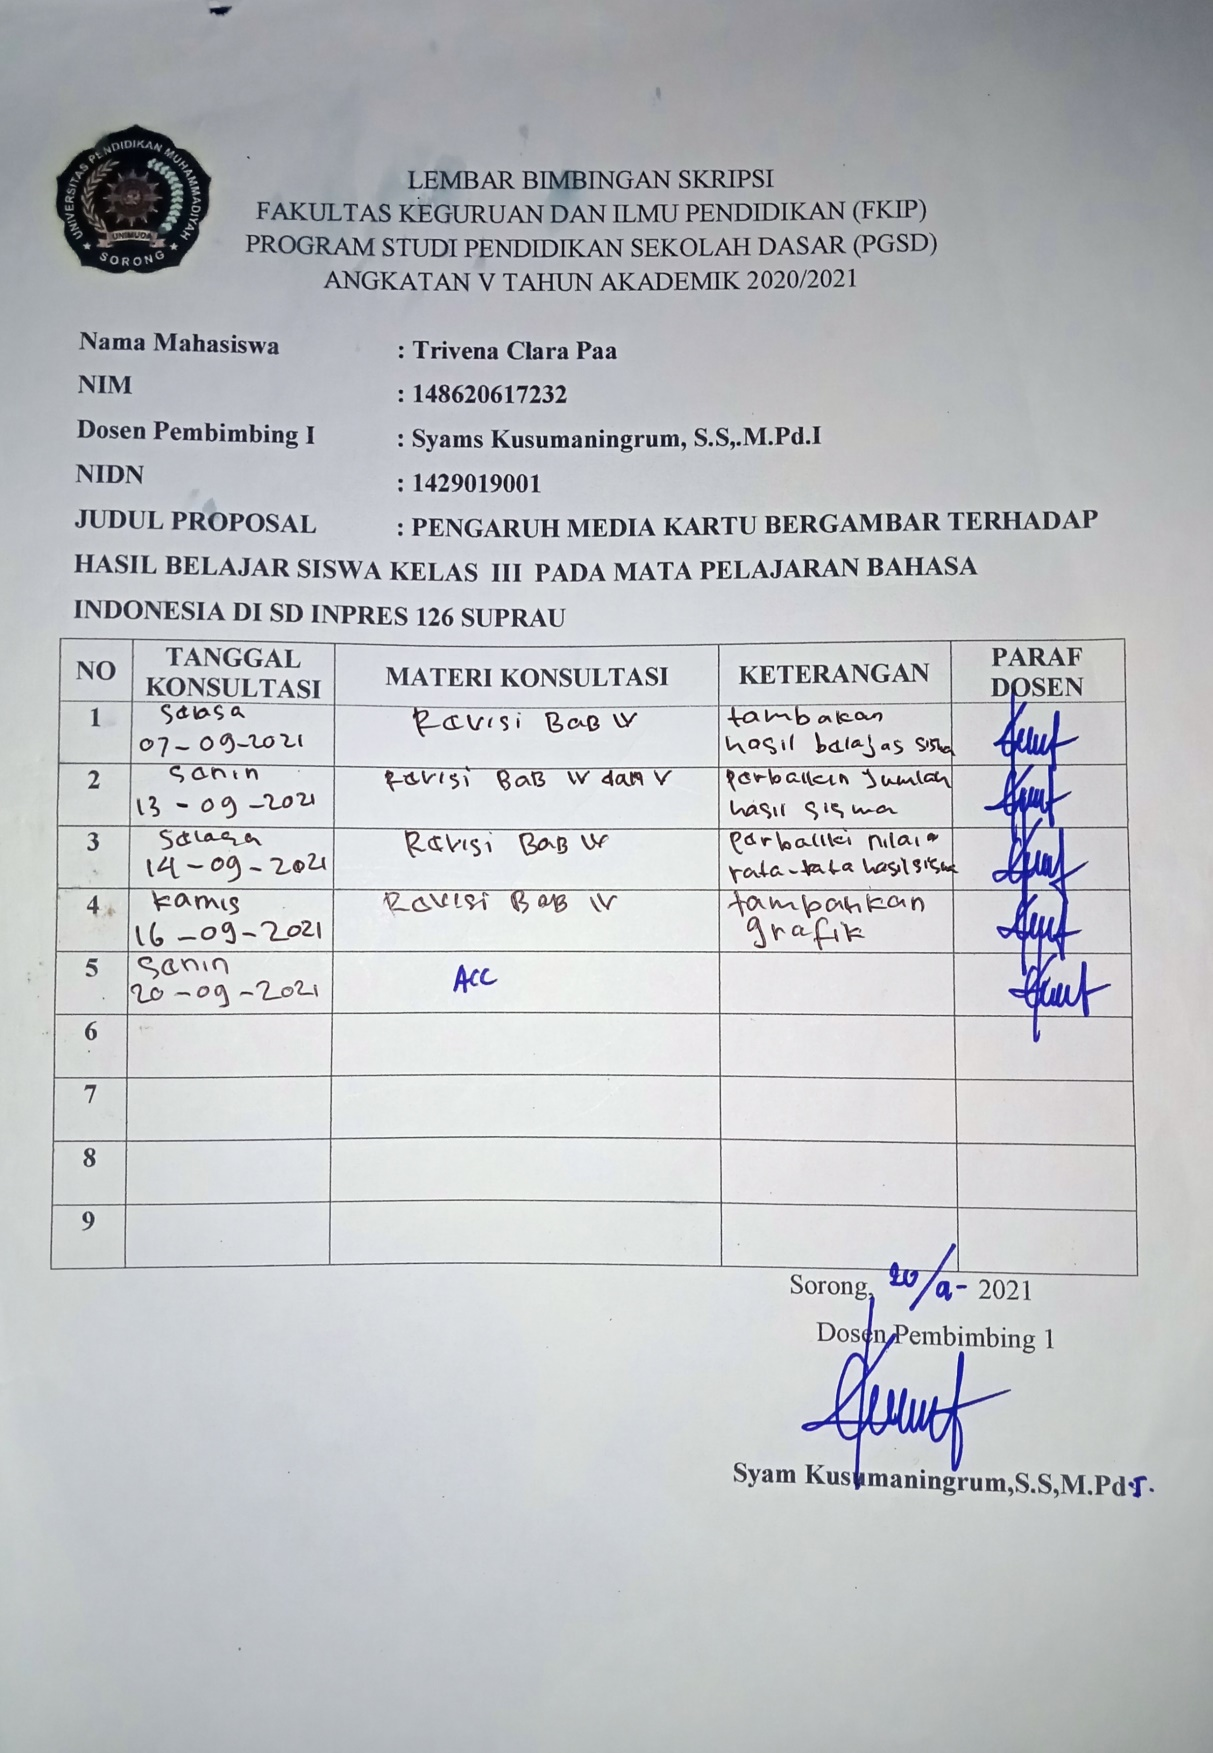 UNIVERSITAS PENDIDIKAN MUHAMMADIYAH
UNIMUDA
SORONG
LEMBAR BIMBINGAN SKRIPSI
FAKULTAS KEGURUAN DAN ILMU PENDIDIKAN (FKIP)
PROGRAM STUDI PENDIDIKAN SEKOLAH DASAR (PGSD)
ANGKATAN V TAHUN AKADEMIK 2020/2021
Nama Mahasiswa : Trivena Clara Paa
NIM : 148620617232
Dosen Pembimbing I : Syams Kusumaningrum, S.S,.M.Pd.I
NIDN : 1429019001
JUDUL PROPOSAL : PENGARUH MEDIA KARTU BERGAMBAR TERHADAP
HASIL BELAJAR SISWA KELAS III PADA MATA PELAJARAN BAHASA
INDONESIA DI SD INPRES 126 SUPRAU
NO TANGGAL KONSULTASI MATERI KONSULTASI KETERANGAN PARAF DOSEN
1 Selasa Revisi BAB IV tambakan
07-09-2021 hasil belajar siswa
2 Senin Revisi BAB IV dan V perbaikin jumlah
13-09-2021 hasil siswa
3 Selasa Revisi BAB IV perbaiki nilai
14-09-2021 rata-rata hasil siswa
4 kamis Revisi BAB IV tambahkan
16-09-2021 grafik
5 Senin ACC
20-09-2021
6
7
8
9
Sorong, 20/9- 2021
Dosen Pembimbing 1
Syam Kusumaningrum,S.S,M.Pd.I.